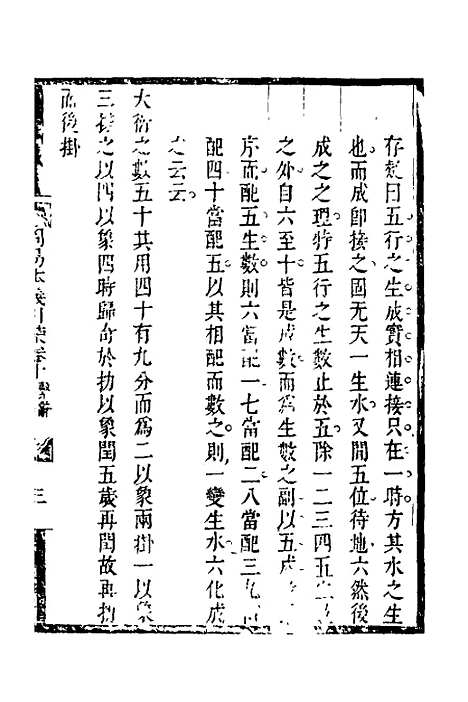 存疑曰五行之生成實相連接只在一時方其水之生
也而成卽接之固无天一生水又閒五位待地六然後
成之之理特五行之生數止於五除一二三四五
之外自六至十皆是成數而爲生數之副以五成
序而配五生數則六當配一七當配二八當配三九
配四十當配五以其相配而數之則一變生水六化成
之云云
大衍之數五十其用四十有九分而爲二以象兩掛一以象
三揲之以四以象四時歸奇於扐以象閏五歲再閏故再扐
而後掛
周易本義引蒙卷十 繫辭 三